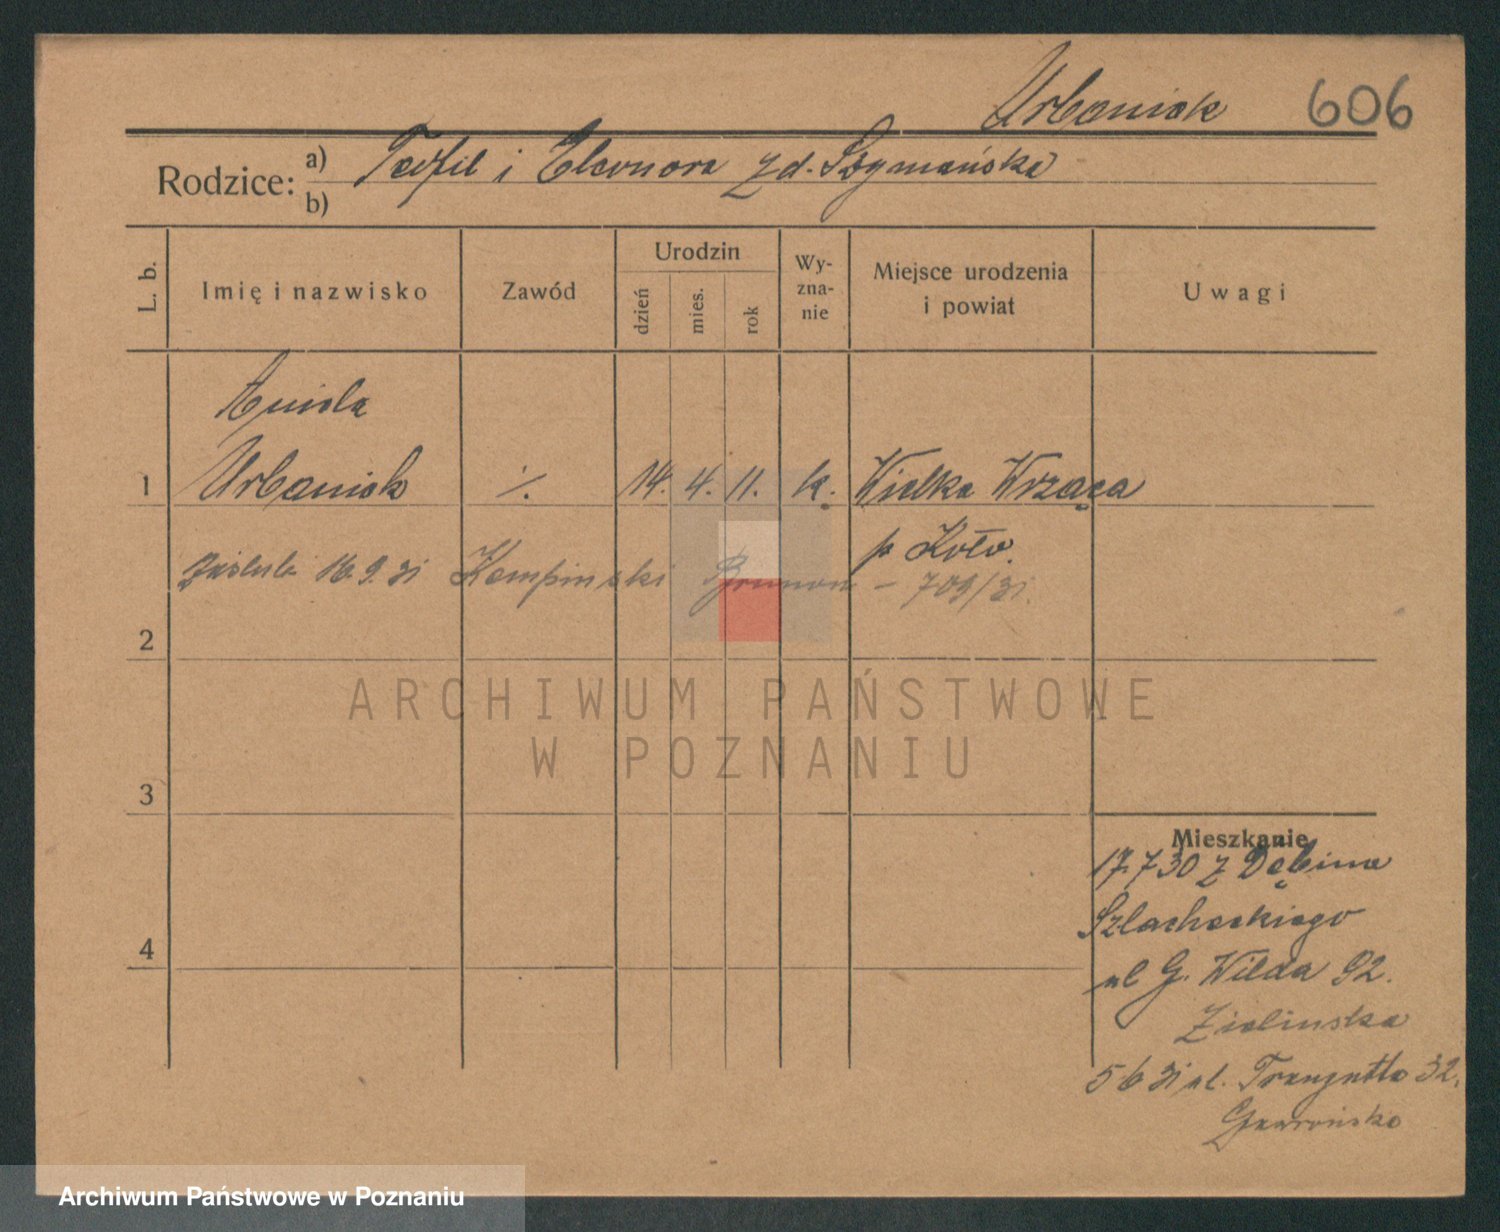 Urbaniak 606
Rodzice: a) Teofil i Eleonora z d. Szymańska
b)
L. b. Imię i nazwisko Zawód Urodzin dzień mies. rok Wy-zna-nie Miejsce urodzenia i powiat Uwagi
Aniela
1 Urbaniak ./. 14. 4. 11. k. Wielka Wrząca
p Koło.
zaślub. 16.9.31 Kempinski Brunon – 709/31.
2
ARCHIWUM PAŃSTWOWE
W POZNANIU
3
Mieszkanie
17.7 30 z Dębina
Szlacheckiego
4
ul G. Wilda 92.
Zielinska
5 6 31 ul. 32.
Gawrońska
Archiwum Państwowe w Poznaniu